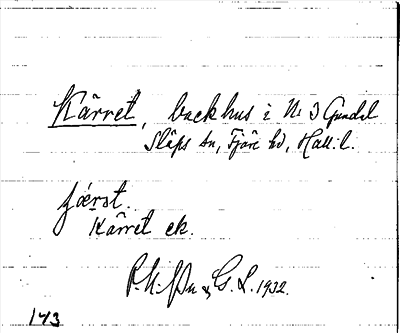 Kärret, backhus i N: 3 Gundal
Släps sn, Fjäre hd, Hall. l.
Kärret ek.
G. L. 1932.
173